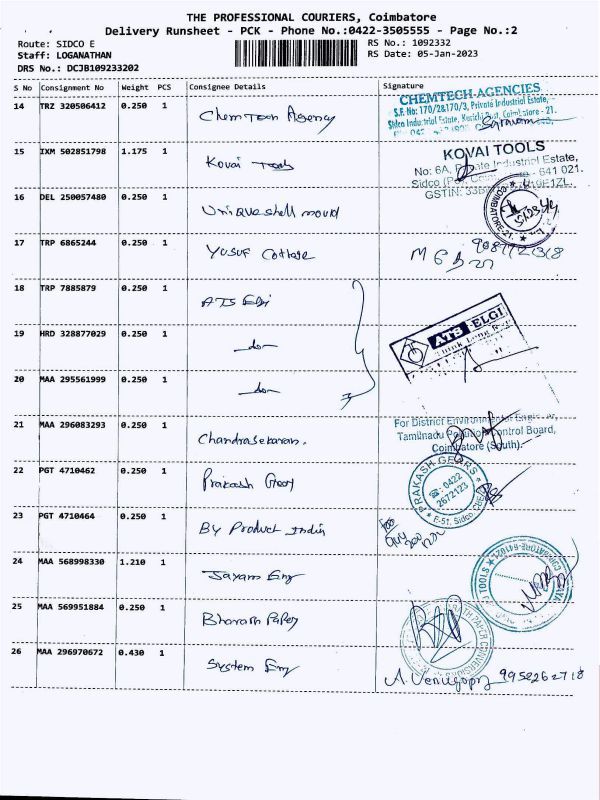 THE PROFESSIONAL COURIERS, Coimbatore
Delivery Runsheet - PCK - Phone No.:0422-3505555 - Page No.:2
Route: SIDCO E
RS No.: 1092332
Staff: LOGANATHAN
RS Date: 05-Jan-2023
DRS No.: DCJB109233202
S No Consignment No Weight PCS Consignee Details Signature
14 TRZ 320506412 0.250 1 Chemtech Agency
CHEMTECH AGENCIES
S.F. No: 170/2&170/3, Private Industrial Estate,
Coimbatore - 21.
15 IXM 502851798 1.175 1 Kovai Tools
KOVAI TOOLS
No: 6A, Private Industrial Estate,
Sidco (Po), 641 021.
GSTIN: 33
16 DEL 250057480 0.250 1 Unique shell mould
COIMBATORE-21.
17 TRP 6865244 0.250 1 Yusuf Cottage
18 TRP 7885879 0.250 1 ATS Elgi
ATS ELGI
19 HRD 328877029 0.250 1 do
20 MAA 295561999 0.250 1 do
21 MAA 296083293 0.250 1 Chandrasekaran.
For District Environmental Engineer,
Tamilnadu Pollution Control Board,
Coimbatore (South).
22 PGT 4710462 0.250 1 Prakash Gear
PRAKASH GEARS
☎: 0422
2672123
F-51, Sidco, CBE
23 PGT 4710464 0.250 1 By Product India
24 MAA 568998330 1.210 1 Jayam Eng
TOOLS COIMBATORE-641021
25 MAA 569951884 0.250 1 Bharath Paper
PAPER CONVERSION
26 MAA 296970672 0.430 1 System Eng
A. Venugopal 9952262718